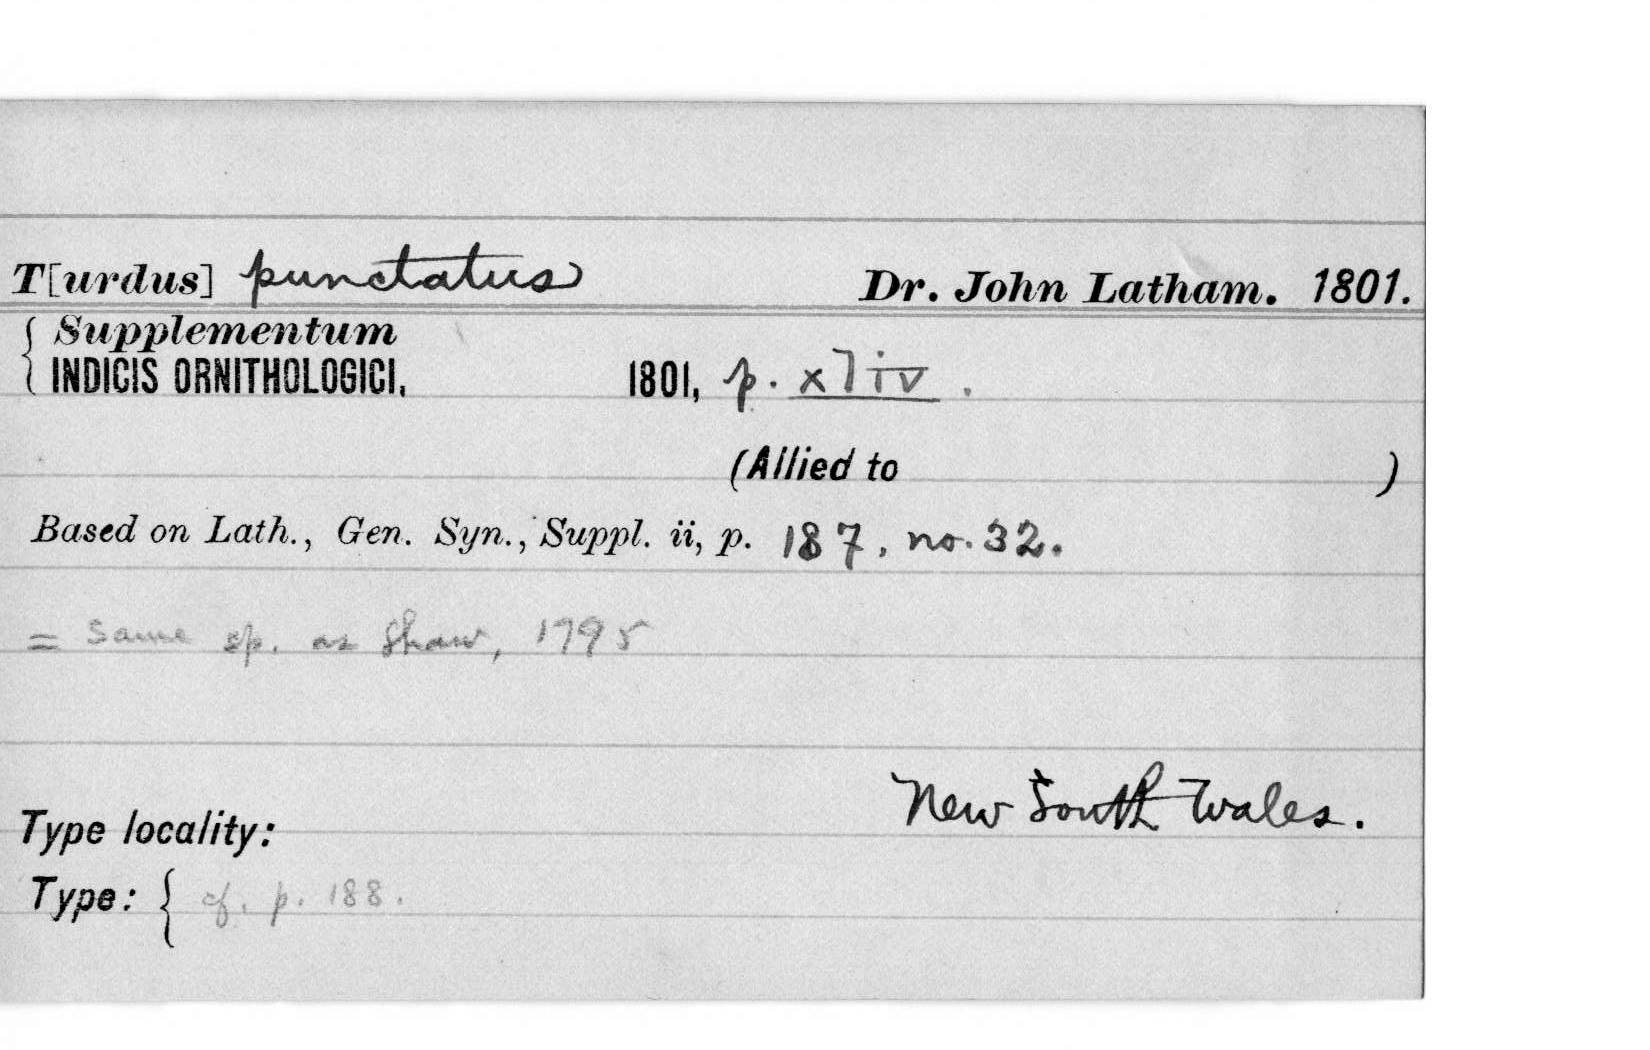 T[urdus] punctatus Dr. John Latham. 1801.
{ Supplementum
INDICIS ORNITHOLOGICI, 1801, p. xliv.
(Allied to )
Based on Lath., Gen. Syn., Suppl. ii, p. 187, no. 32.
= Same sp. as Shaw, 1795
New South Wales.
Type locality:
Type: { cf. p. 188.